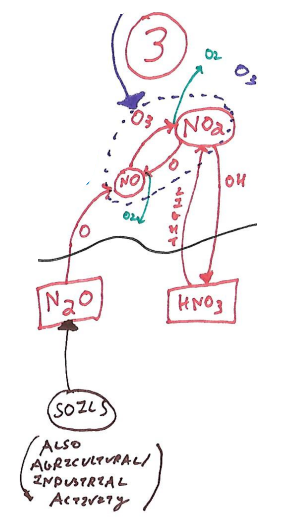 3
O2
O3
O3
NO2
NO
O
O2
LIGHT
OH
O
N2O
HNO3
SOILS
(ALSO
AGRICULTURAL/
INDUSTRIAL
ACTIVITY)